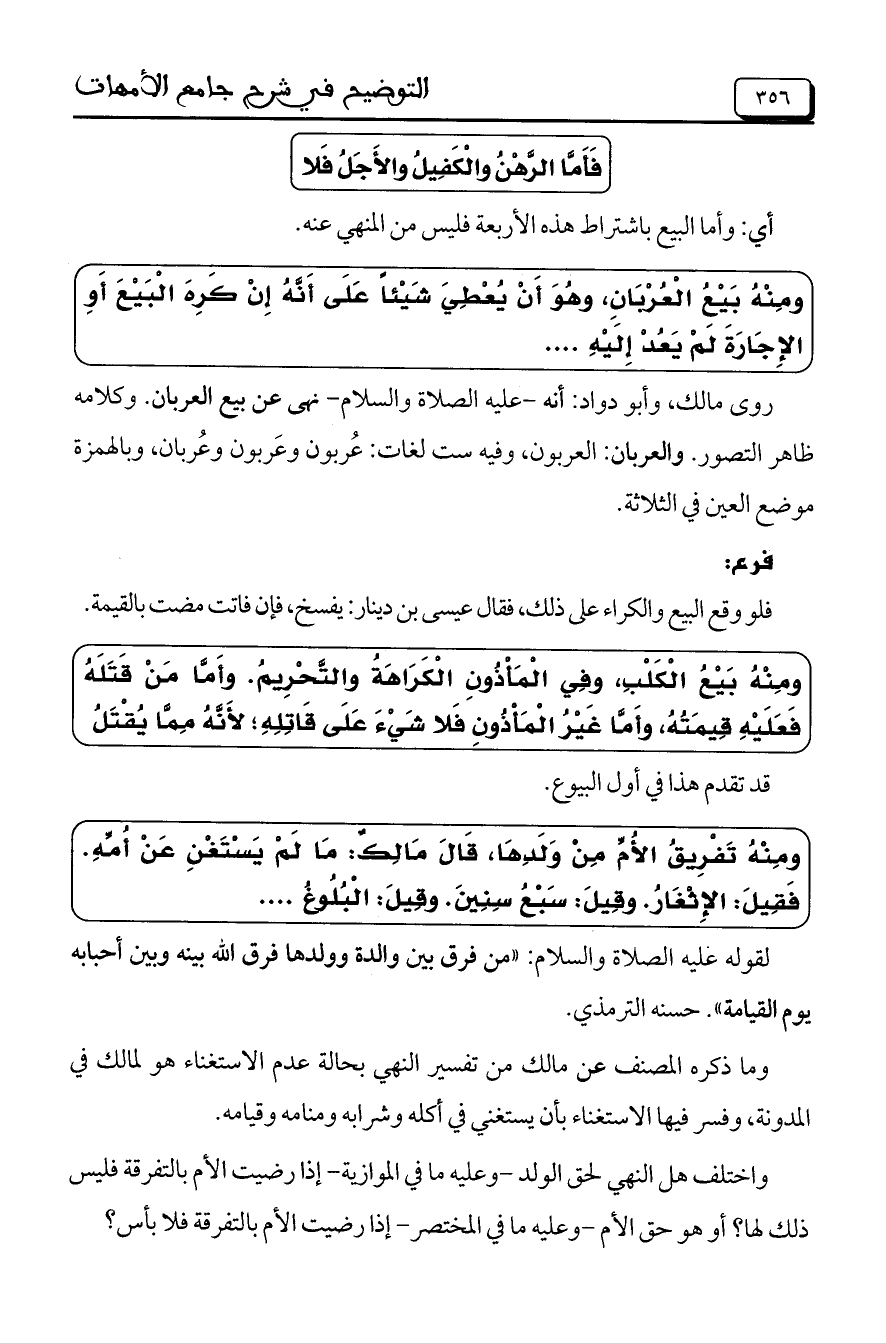 ٣٥٦
التوضيح في شرح جامع الأمهات
فَأَمَّا الرَّهْنُ والْكَفِيلُ والأَجَلُ فَلا
أي: وأما البيع باشتراط هذه الأربعة فليس من المنهي عنه.
ومِنْهُ بَيْعُ الْعُرْبَانِ، وهُوَ أَنْ يُعْطِيَ شَيْئاً عَلَى أَنَّهُ إِنْ كَرِهَ الْبَيْعَ أَوِ
الإِجَارَةَ لَمْ يَعُدْ إِلَيْهِ ....
روى مالك، وأبو دواد: أنه -عليه الصلاة والسلام- نهى عن بيع العربان. وكلامه
ظاهر التصور. والعربان: العربون، وفيه ست لغات: عُربون وعَربون وعُربان، وبالهمزة
موضع العين في الثلاثة.
فرع:
فلو وقع البيع والكراء على ذلك، فقال عيسى بن دينار: يفسخ، فإن فاتت مضت بالقيمة.
ومِنْهُ بَيْعُ الْكَلْبِ، وفِي الْمَأْذُونِ الْكَرَاهَةُ والتَّحْرِيمُ. وأَمَّا مَنْ قَتَلَهُ
فَعَلَيْهِ قِيمَتُهُ، وأَمَّا غَيْرُ الْمَأْذُونِ فَلا شَيْءَ عَلَى قَاتِلِهِ؛ لأَنَّهُ مِمَّا يُقْتَلُ
قد تقدم هذا في أول البيوع.
ومِنْهُ تَفْرِيقُ الأُمِّ مِنْ وَلَدِهَا، قَالَ مَالِكٌ: مَا لَمْ يَسْتَغْنِ عَنْ أُمِّهِ.
فَقِيلَ: الإِثْغَارُ. وقِيلَ: سَبْعُ سِنِينَ. وقِيلَ: الْبُلُوغُ ....
لقوله عليه الصلاة والسلام: «من فرق بين والدة وولدها فرق الله بينه وبين أحبابه
يوم القيامة». حسنه الترمذي.
وما ذكره المصنف عن مالك من تفسير النهي بحالة عدم الاستغناء هو لمالك في
المدونة، وفسر فيها الاستغناء بأن يستغني في أكله وشرابه ومنامه وقيامه.
واختلف هل النهي لحق الولد -وعليه ما في الموازية- إذا رضيت الأم بالتفرقة فليس
ذلك لها؟ أو هو حق الأم -وعليه ما في المختصر- إذا رضيت الأم بالتفرقة فلا بأس؟